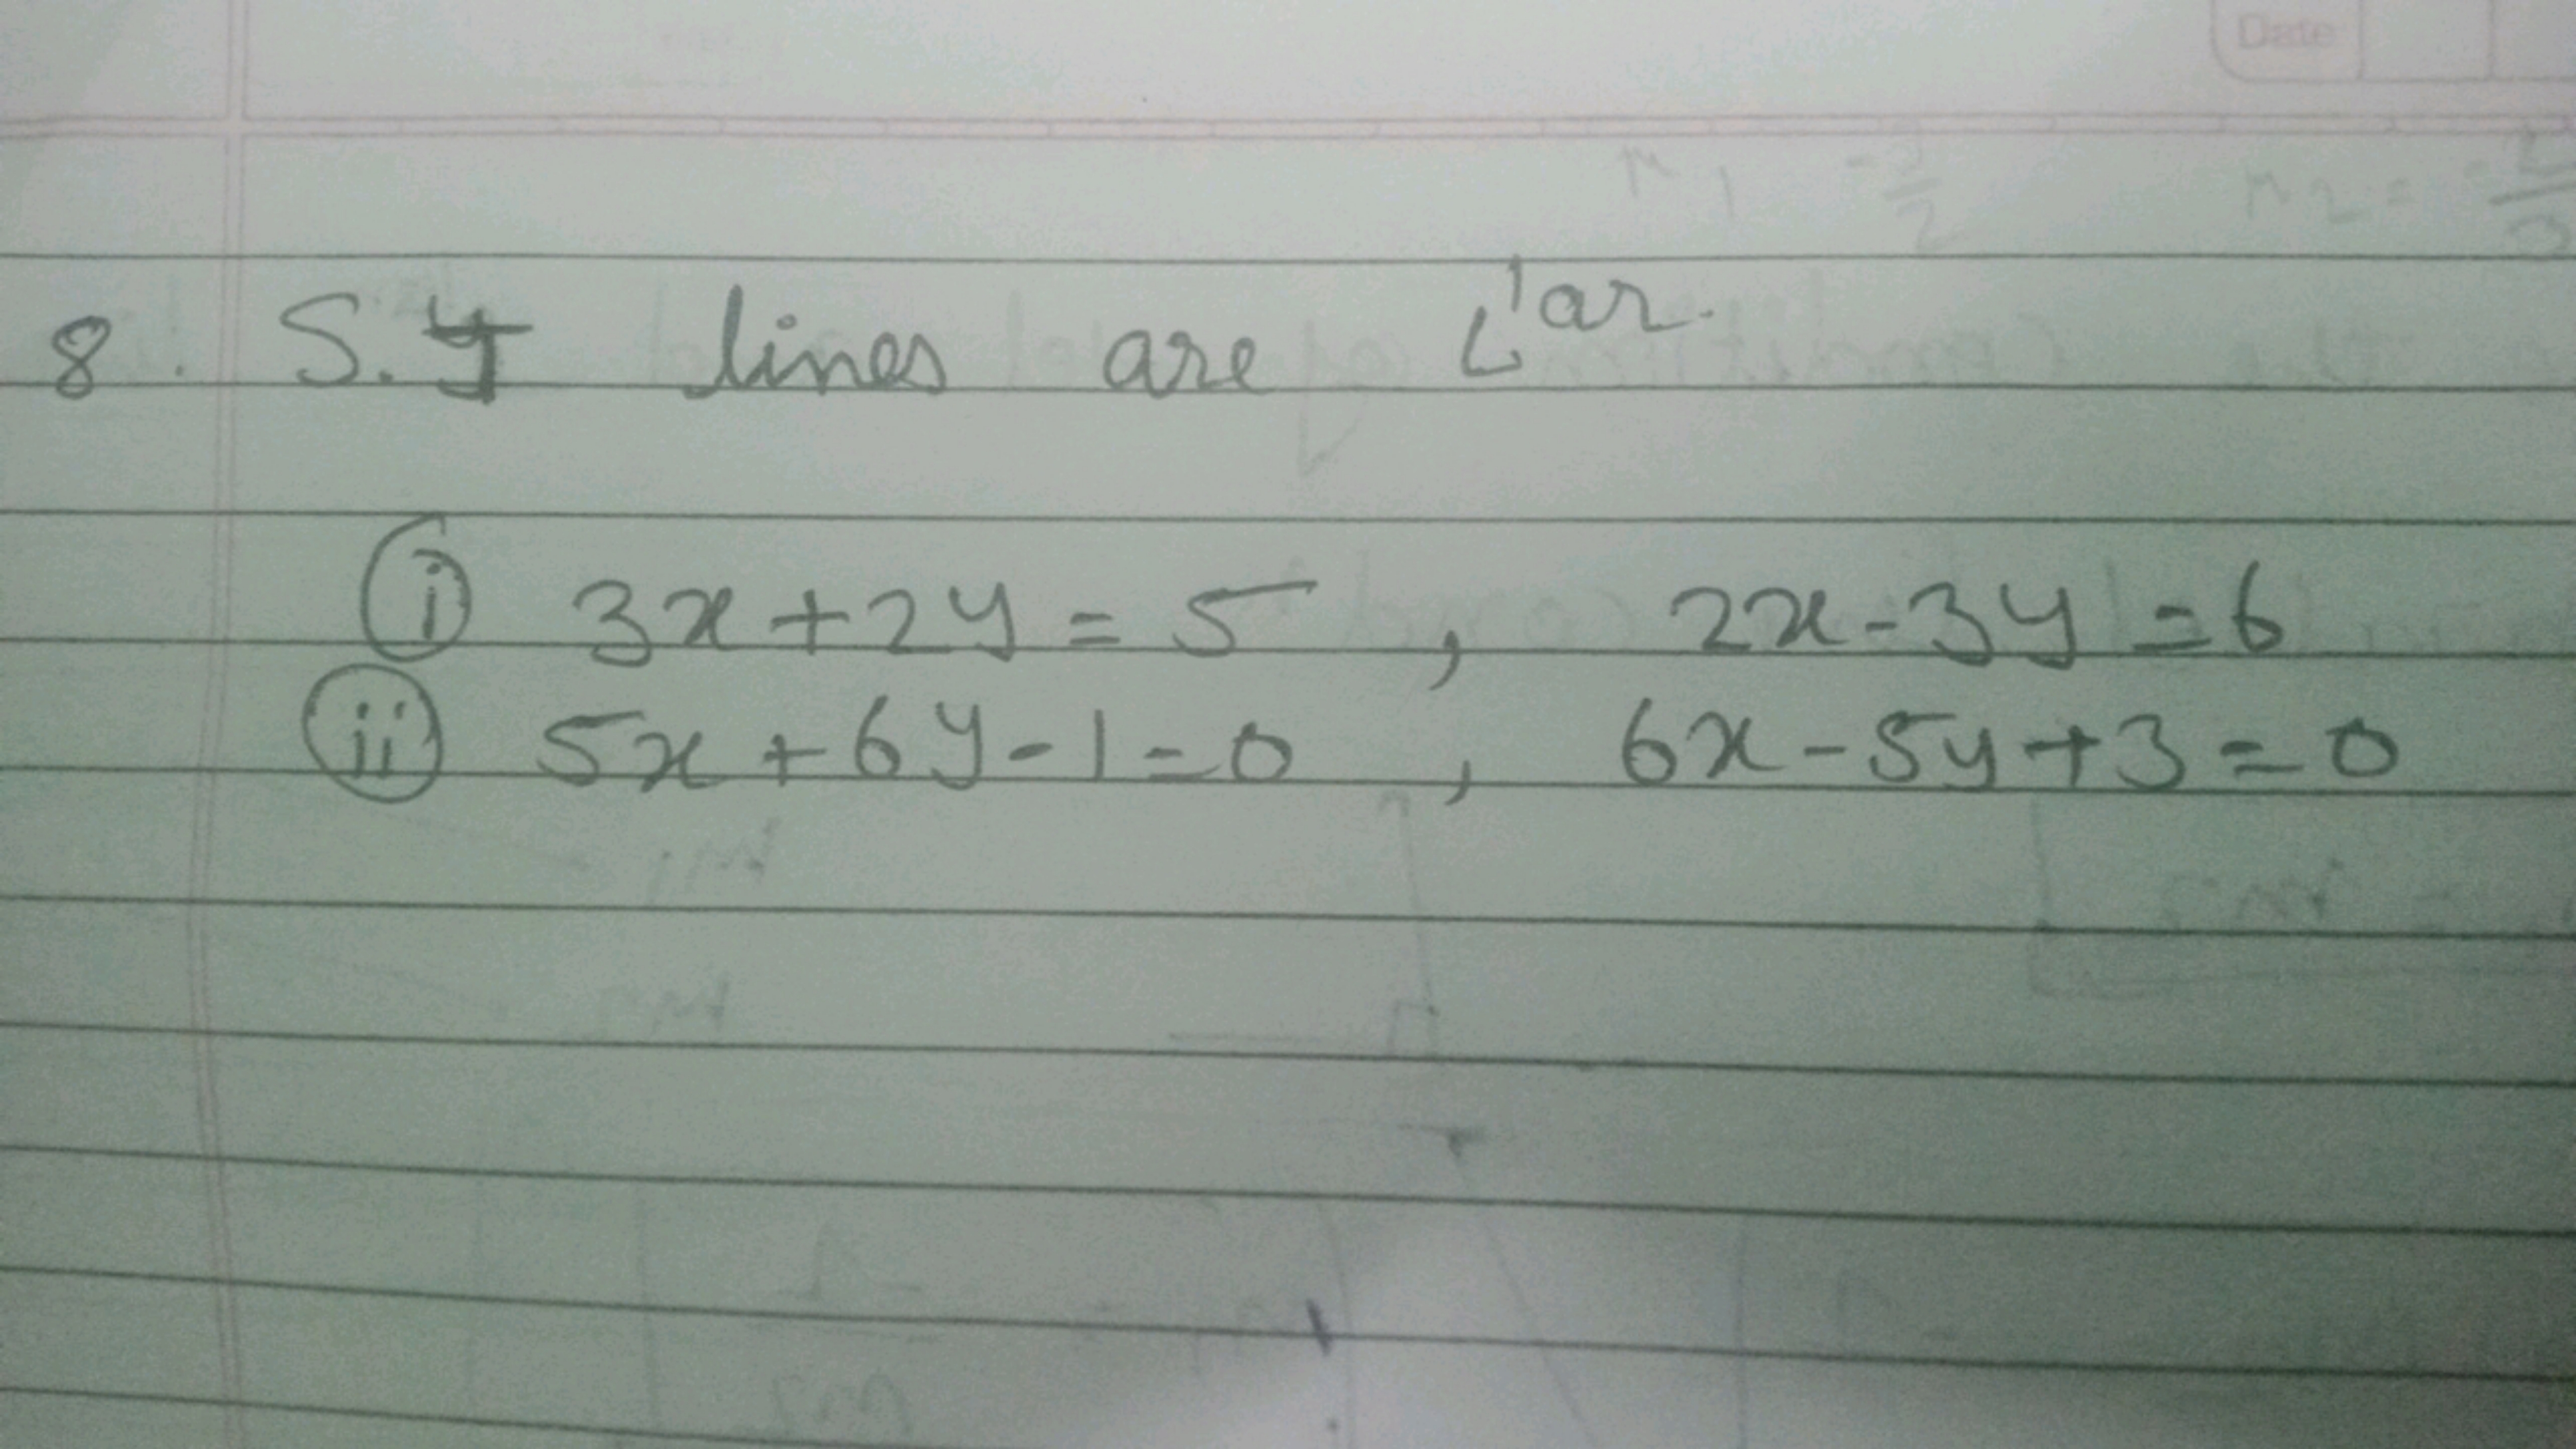 Date
8. S.T lines are ⊥ar.
(i) 3x+2y=5 , 2x-3y=6
(ii) 5x+6y-1=0 , 6x-5y+3=0